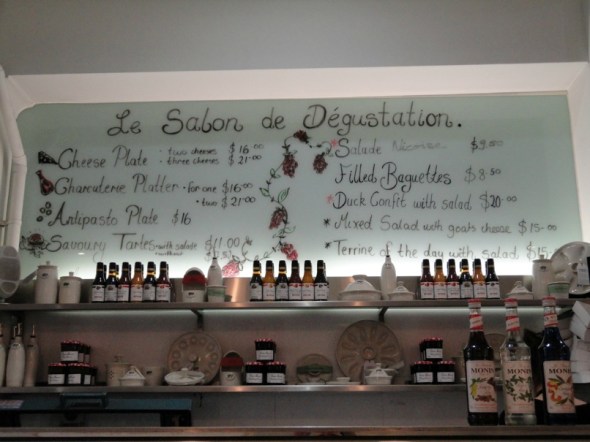 Le Salon de Dégustation.
Cheese Plate · two cheeses $16.00
· three cheeses $21.00
Charcuterie Platter · for one $16.00
· two $21.00
Antipasto Plate $16
Savoury Tartes with salade $11.00
Salade Nicoise $9.50
Filled Baguettes $8.50
Duck Confit with salad $20.00
Mixed Salad with goats cheese $15-00
Terrine of the day with salad $15
MONIN
MONIN
MONIN